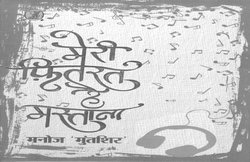 मेरी
फितरत
है
मस्ताना
मनोज 'मुंतशिर'